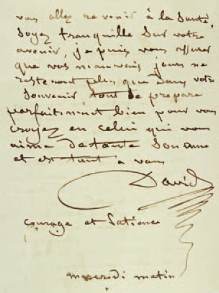 vous allez revenir à la santé
soyez tranquille sur votre
avenir, je puis vous assurer
que vos mauvais jours ne
resteront plus que dans votre
souvenir, tout se prépare
parfaitement bien pour vous
croyez en celui qui vous
aime de toute son ame
et est tout à vous
David
courage et Patience
mercredi matin